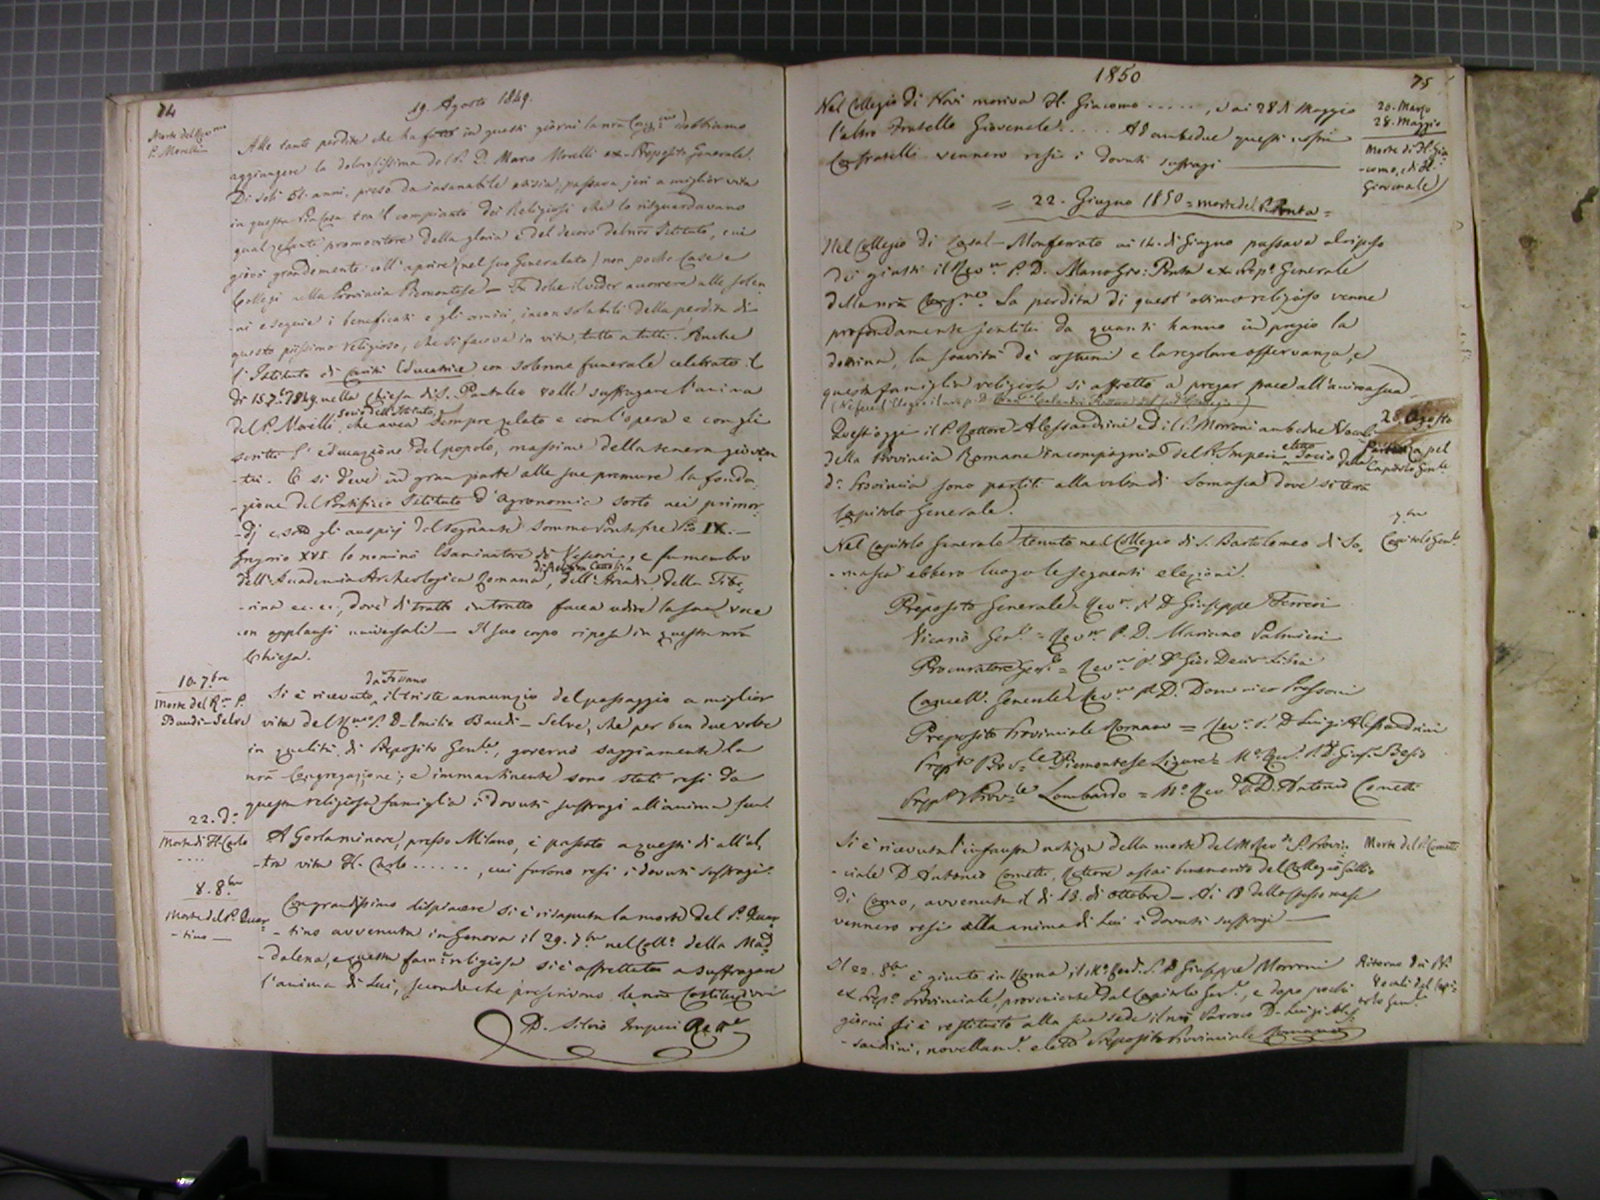 74
19. Agosto 1849.
Morte del Rev.mo
P. Morelli
Alle tante perdite che ha fatto in questi giorni la nrã Cong.ne dobbiamo
aggiungere la dolorosissima del P. D. Marco Morelli ex-Preposito Generale.
Di soli anni, preso da insanabile etisia, passava jeri a miglior vita
in questa Pia Casa tra il compianto dei Religiosi che lo risguardavano
qual zelante promovitore della gloria e del decoro del nrõ Istituto, cui
giovò grandemente coll'aprire (nel suo Generalato) non poche Case e
Collegi nella Provincia Piemontese — Fu dolce il veder accorrere alle solen
-ni esequie i beneficati e gli amici, inconsolabili della perdita di
questo piissimo religioso, che si faceva in vita tutto a tutti. Anche
l'Istituto di Carità Educatrice con solenne funerale celebrato il
di 15 7.e 1849. nella Chiesa di S. Pantaleo volle suffragare l'anima
del P. Morelli, socio dell'Istituto, che avea sempre zelato e con l'opera e con gli
scritti l'educazione del popolo, massime della tenera gioven
-tù. E si deve in gran parte alle sue premure la fonda
-zione del Pontificio Istituto d'Agronomia sorto nei primor
-dj e sotto gli auspicj del regnante Sommo Pontefice Pio IX. —
Gregorio XVI. lo nominò Esaminatore de' Vescovi, e fu membro
dell'Accademia Archeologica Romana, di Religion Cattolica, dell'Arcadia, della Tibe
-rina ec. ec., dove di tratto in tratto facea udire la sua voce
con applausi universali — Il suo corpo riposa in questa nrã
Chiesa.
10. 7.bre
Morte del R.mo P.
Baudi-Selve
Si è ricevuto da Fossano il triste annunzio del passaggio a miglior
vita del R.mo P. D. Emilio Baudi-Selve, che per ben due volte
in qualità di Preposito Gen.le, governò saggiamente la
nrã Congregazione; e immantinente sono stati resi da
questa religiosa famiglia i dovuti suffragi all'anima sua.
22. d.o
Morte di Fr. Carlo
....
A Gorla minore, presso Milano, è passato a questi dì all'al
-tra vita Fr. Carlo ......, cui furono resi i dovuti suffragi.
8. 8.bre
Morte del P. Quar
-tino —
Con grandissimo dispiacere si è risaputa la morte del P. Quar
-tino avvenuta in Genova il 29. 7.bre nel Coll.o della Mad
-dalena, e questa fam.a religiosa si è affrettata a suffragare
l'anima di Lui, secondo che prescrivono le nrẽ Costituzioni
D. Silvio Imperi Rett.e
1850
75
Nel Collegio di Novi moriva Fr. Giacomo ....., e ai 28 Maggio
l'altro Fratello Giovenale..... Ad ambedue questi nostri
Confratelli vennero resi i dovuti suffragi
20. Marzo
28. Maggio
Morte di Fr. Gia
-como, e di Fr.
Giovenale
= 22. Giugno 1850 = morte del P. Ponta =
Nel Collegio di Casal-Monferrato ai 14. di Giugno passava al riposo
de' giusti il Rev.mo P. D. Marco Gio: Ponta ex Prep.o Generale
della nrã Cong.ne. La perdita di quest'ottimo religioso venne
profondamente sentita da quanti hanno in pregio la
dottrina, la soavità de' costumi e la regolare osservanza, e
questa famiglia religiosa si affrettò a pregar pace all'anima sua
Quest'oggi il P. Rettore Alessandrini ed il P. Morroni ambedue Vocali
della Provincia Romana in compagnia del P. Imperi eletto Socio della
d.a Provincia sono partiti alla volta di Somasca dove si terrà
Capitolo Generale.
28. Agosto
Partenza pel
Capitolo Gen.le
Nel Capitolo Generale tenuto nel Collegio di S. Bartolomeo di So.
-masca ebbero luogo le seguenti elezioni.
7.bre
Capitolo Gen.le
Preposito Generale = Rev.mo P. D. Giuseppe Ferreri
Vicario Gen.le = Rev.mo P. D. Mariano Palmieri
Procuratore Gen.le = Rev.mo P. D. Gius. Decio Libois
Cancell. Generale = Rev.mo P. D. Domenico Pressoni
Preposito Provinciale Romano = Rev.o P. D. Luigi Alessandrini
Prep.to Prov.le Piemontese Ligure = M.o Rev. P. D. Gius. Besio
Prep.o Prov.le Lombardo = M.o Rev.do P. D. Antonio Cometti
Si è ricevuta l'infausta notizia della morte del M. Rev.do P. Provin
-ciale D. Antonio Cometti, Rettore assai benemerito del Collegio Gallio
di Como, avvenuta il dì 13. di ottobre — Ai 18 dello stesso mese
vennero resi alla anima di Lui i dovuti suffragi —
Morte del P. Cometti
Il 22. 8.bre è giunto in Roma il M.o Rev.do P. D. Giuseppe Morroni
ex Prep.o Provinciale, proveniente dal Capitolo Gen.le, e dopo pochi
giorni si è restituito alla sua sede il nrõ Parroco D. Luigi Ales
-sandrini, novellam.e eletto Preposito Provinciale Romano
Ritorno dei PP.
Vocali dal Capi-
-tolo Gen.le